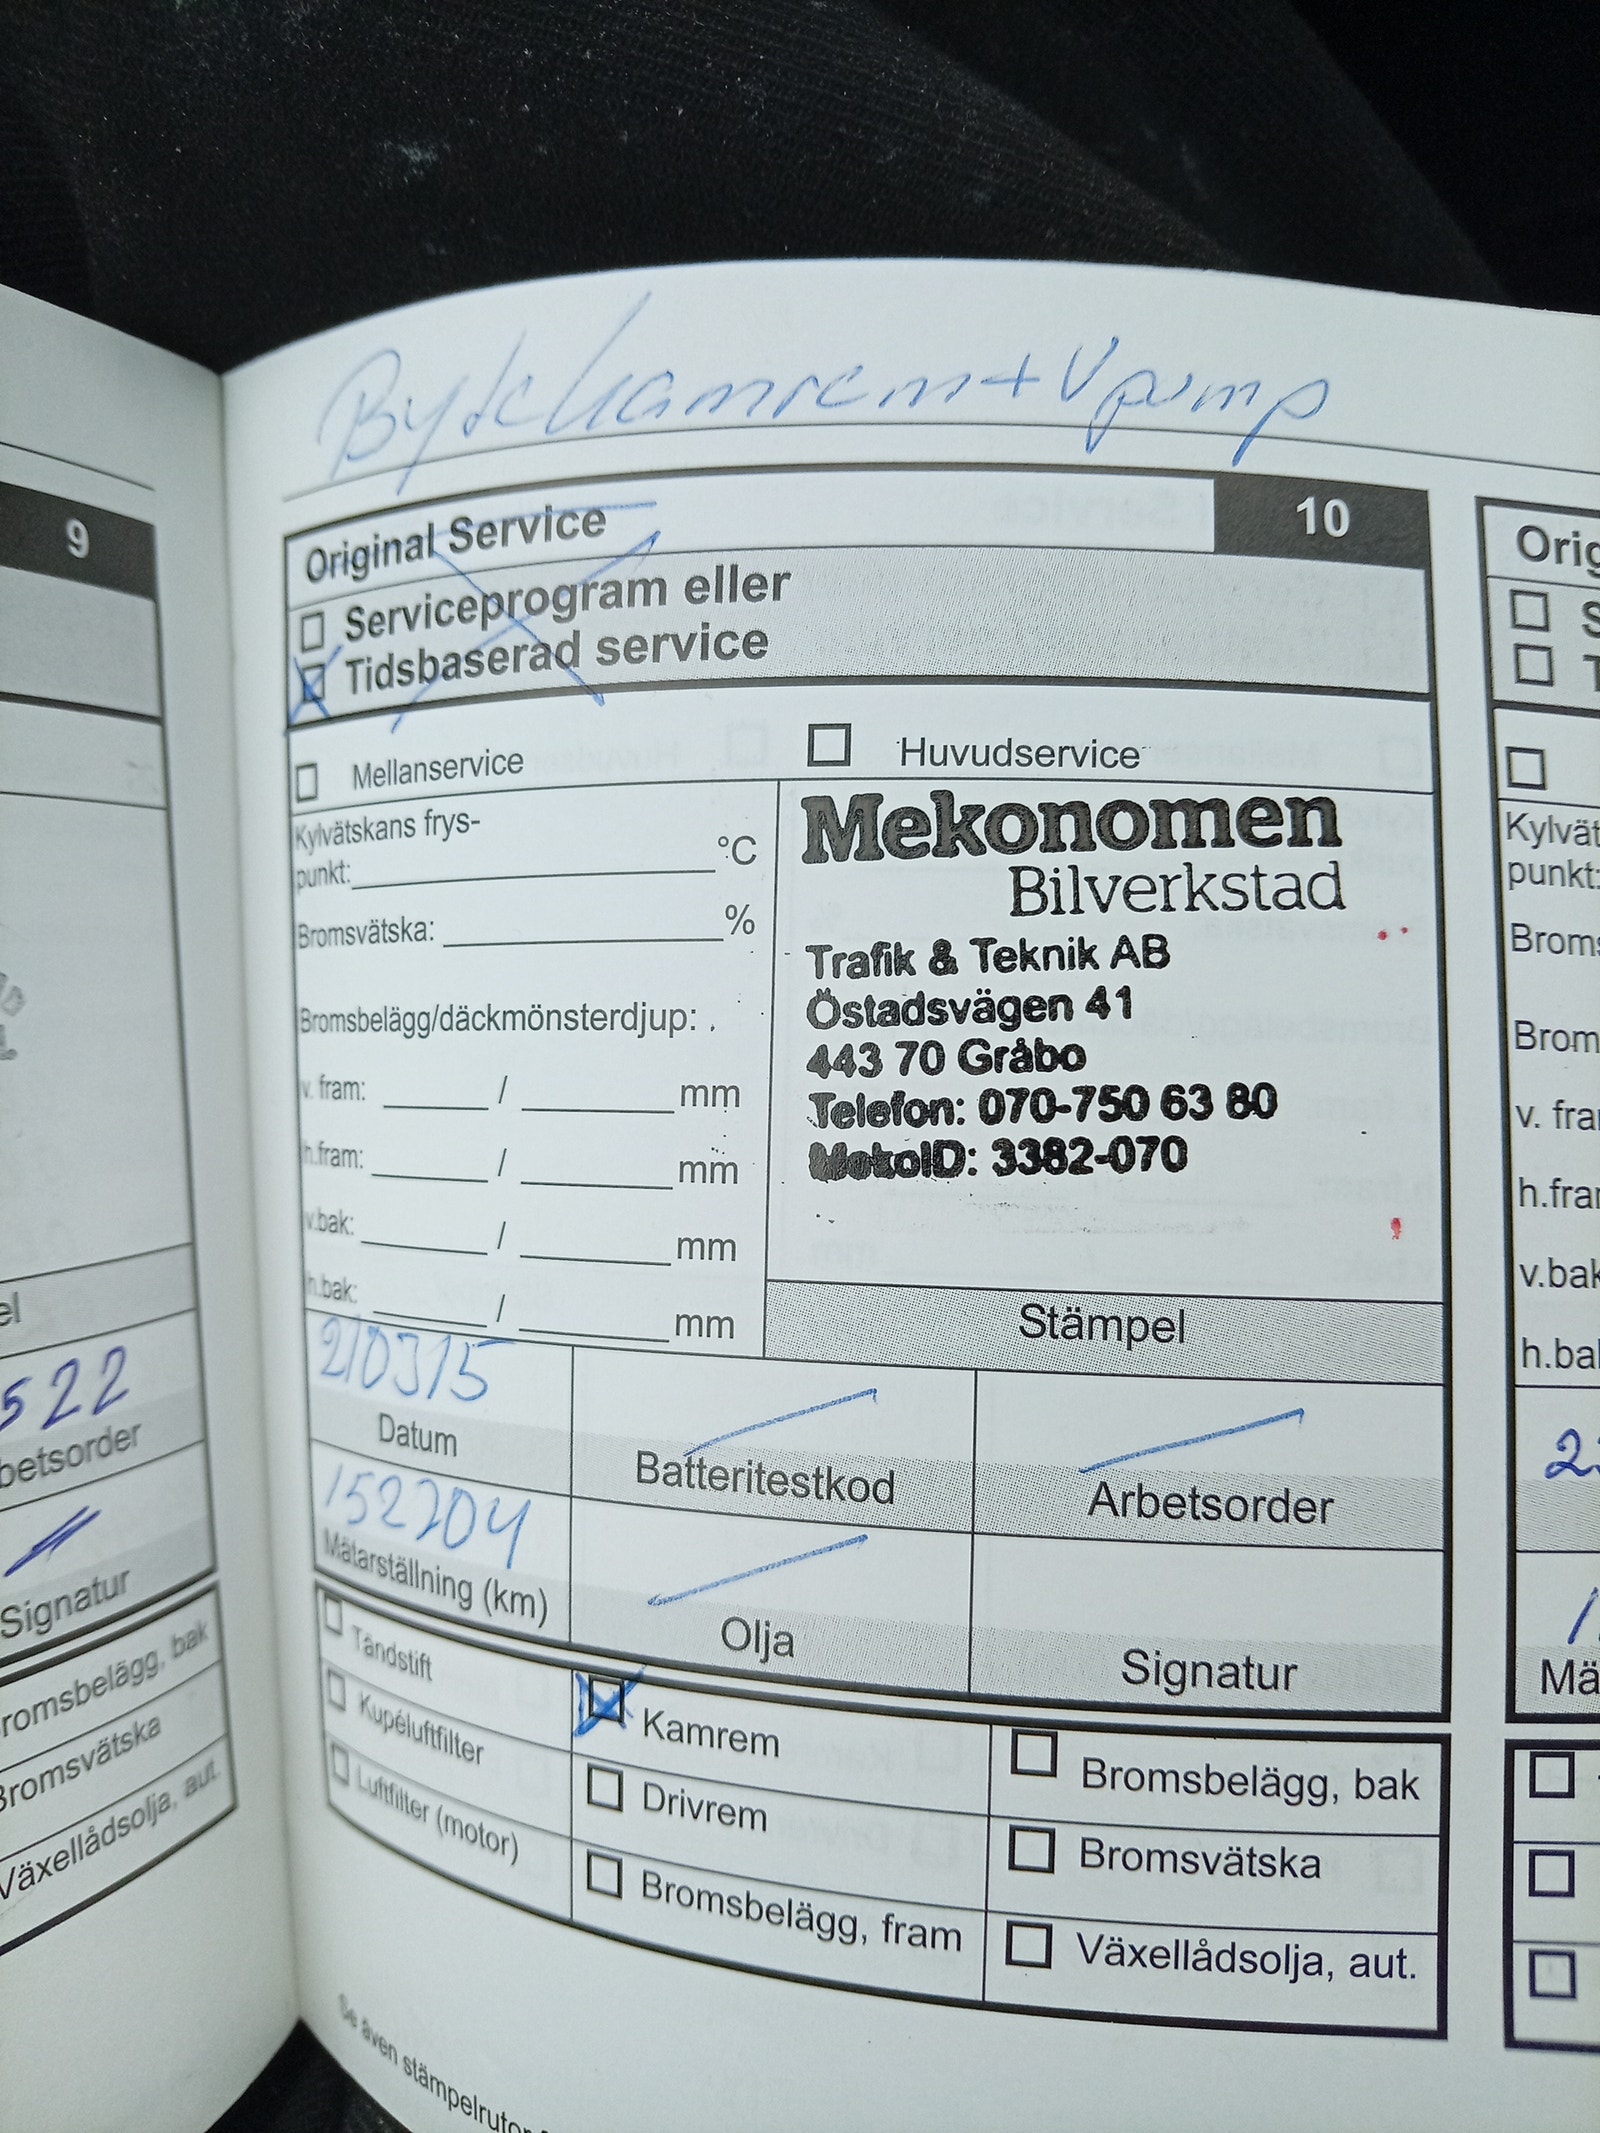 Byte kamrem + Vpump
9
Original Service
10
Serviceprogram eller
Tidsbaserad service
Mellanservice
Huvudservice
Kylvätskans frys-
punkt: °C
Bromsvätska: %
Bromsbelägg/däckmönsterdjup:
v. fram: / mm
h.fram: / mm
v.bak: / mm
h.bak: / mm
Mekonomen
Bilverkstad
Trafik & Teknik AB
Östadsvägen 41
443 70 Gråbo
Telefon: 070-750 63 80
MekoID: 3382-070
Stämpel
210315
Datum
Batteritestkod
Arbetsorder
152204
Mätarställning (km)
Olja
Signatur
Tändstift
Kupéluftfilter
Luftfilter (motor)
Kamrem
Drivrem
Bromsbelägg, fram
Bromsbelägg, bak
Bromsvätska
Växellådsolja, aut.
Se även stämpelrutor
el
522
betsorder
Signatur
romsbelägg, bak
Bromsvätska
Växellådsolja, aut.
Orig
S
T
Kylvät
punkt:
Broms
Brom
v. fra
h.fra
v.bak
h.ba
Mä